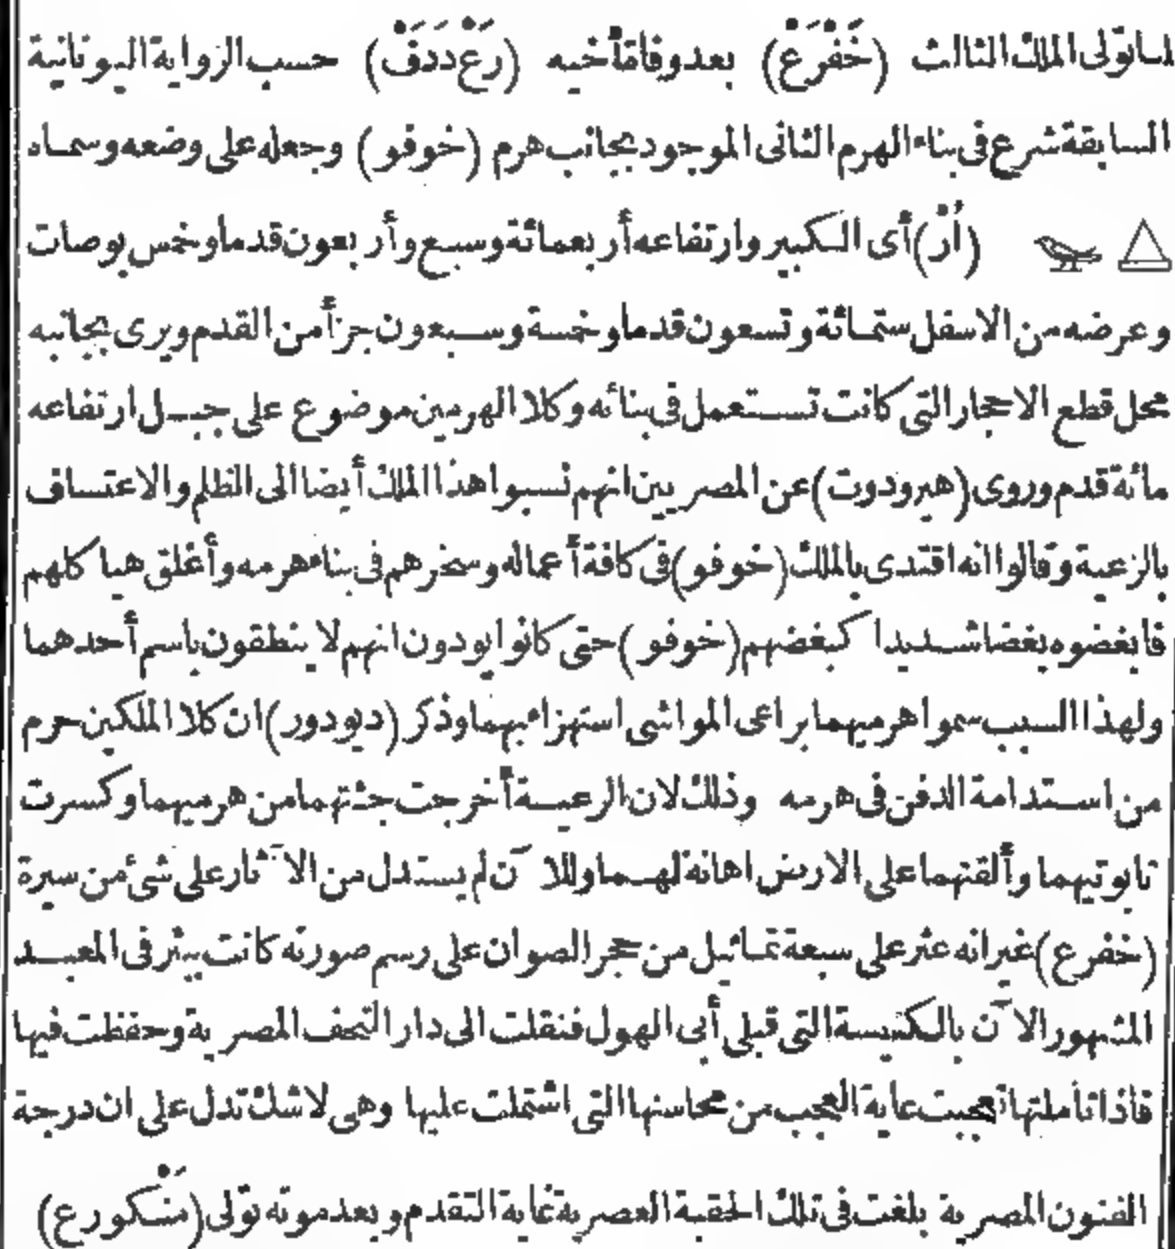 لما تولى الملك الثالث (خَفْرَعْ) بعد وفاة أخيه (رَعْ دَدَفْ) حسب الرواية اليونانية
السابقة شرع في بناء الهرم الثاني الموجود بجانب هرم (خوفو) وجعله على وضعه وسماه
(أُرْ) أى الكبير وارتفاعه أربعمائة وسبع وأربعون قدما وخمس بوصات
وعرضه من الاسفل ستمائة وتسعون قدما وخمسة وسبعون جزأ من القدم ويرى بجانبه
محل قطع الاحجار التى كانت تستعمل فى بنائه وكلا الهرمين موضوع على جبل ارتفاعه
مائة قدم وروى (هيرودوت) عن المصريين انهم نسبوا هذا الملك أيضا الى الظلم والاعتساف
بالرعية وقالوا انه اقتدى بالملك (خوفو) فى كافة أعماله وسخرهم فى بناء هرمه وأغلق هياكلهم
فابغضوه بغضا شديدا كبغضهم (خوفو) حتى كانوا يودون انهم لا ينطقون باسم أحدهما
ولهذا السبب سموا هرميهما براعى المواشى استهزاء بهما وذكر (ديودور) ان كلا الملكين حرم
من استدامة الدفن فى هرمه وذلك لان الرعية أخرجت جثتهما من هرميهما وكسرت
تابوتيهما وألقتهما على الارض اهانة لهما وللآن لم يستدل من الآثار على شئ من سيرة
(خفرع) غير انه عثر على سبعة تماثيل من حجر الصوان على رسم صورته كانت ببئر فى المعبد
المشهور الآن بالكنيسة التى قبلى أبى الهول فنقلت الى دار التحف المصرية وحفظت فيها
فاذا تأملتها تعجبت غاية العجب من محاسنها التى اشتملت عليها وهى لاشك تدل على ان درجة
الفنون المصرية بلغت فى تلك الحقبة العصرية غاية التقدم وبعد موته تولى (مَنْكورع)